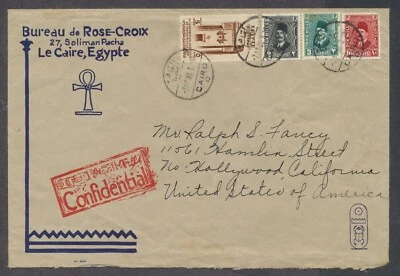 Bureau de ROSE-CROIX
27, Soliman Pacha
Le Caire, Egypte
CAIRO
Mr. Ralph S. Fancy
11561 Hamlin Street
No. Hollywood, California
United States of America
Confidential